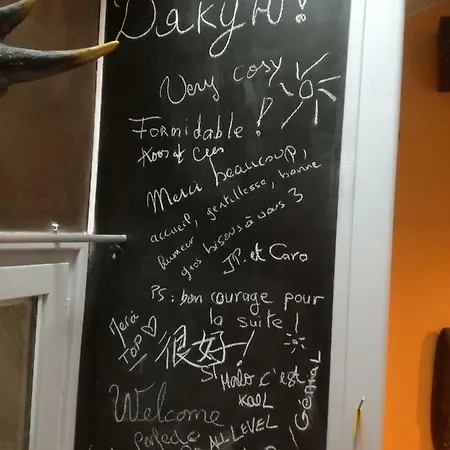 Very cosy
Formidable !
Merci beaucoup,
accueil, gentillesse, bonne
humeur
gros bisous à vous 3
JP. et Caro
PS : bon courage pour
la suite !
Merci
TOP
很好 !
St Malo c'est
Genial
Welcome
Perfect
ALL LEVEL